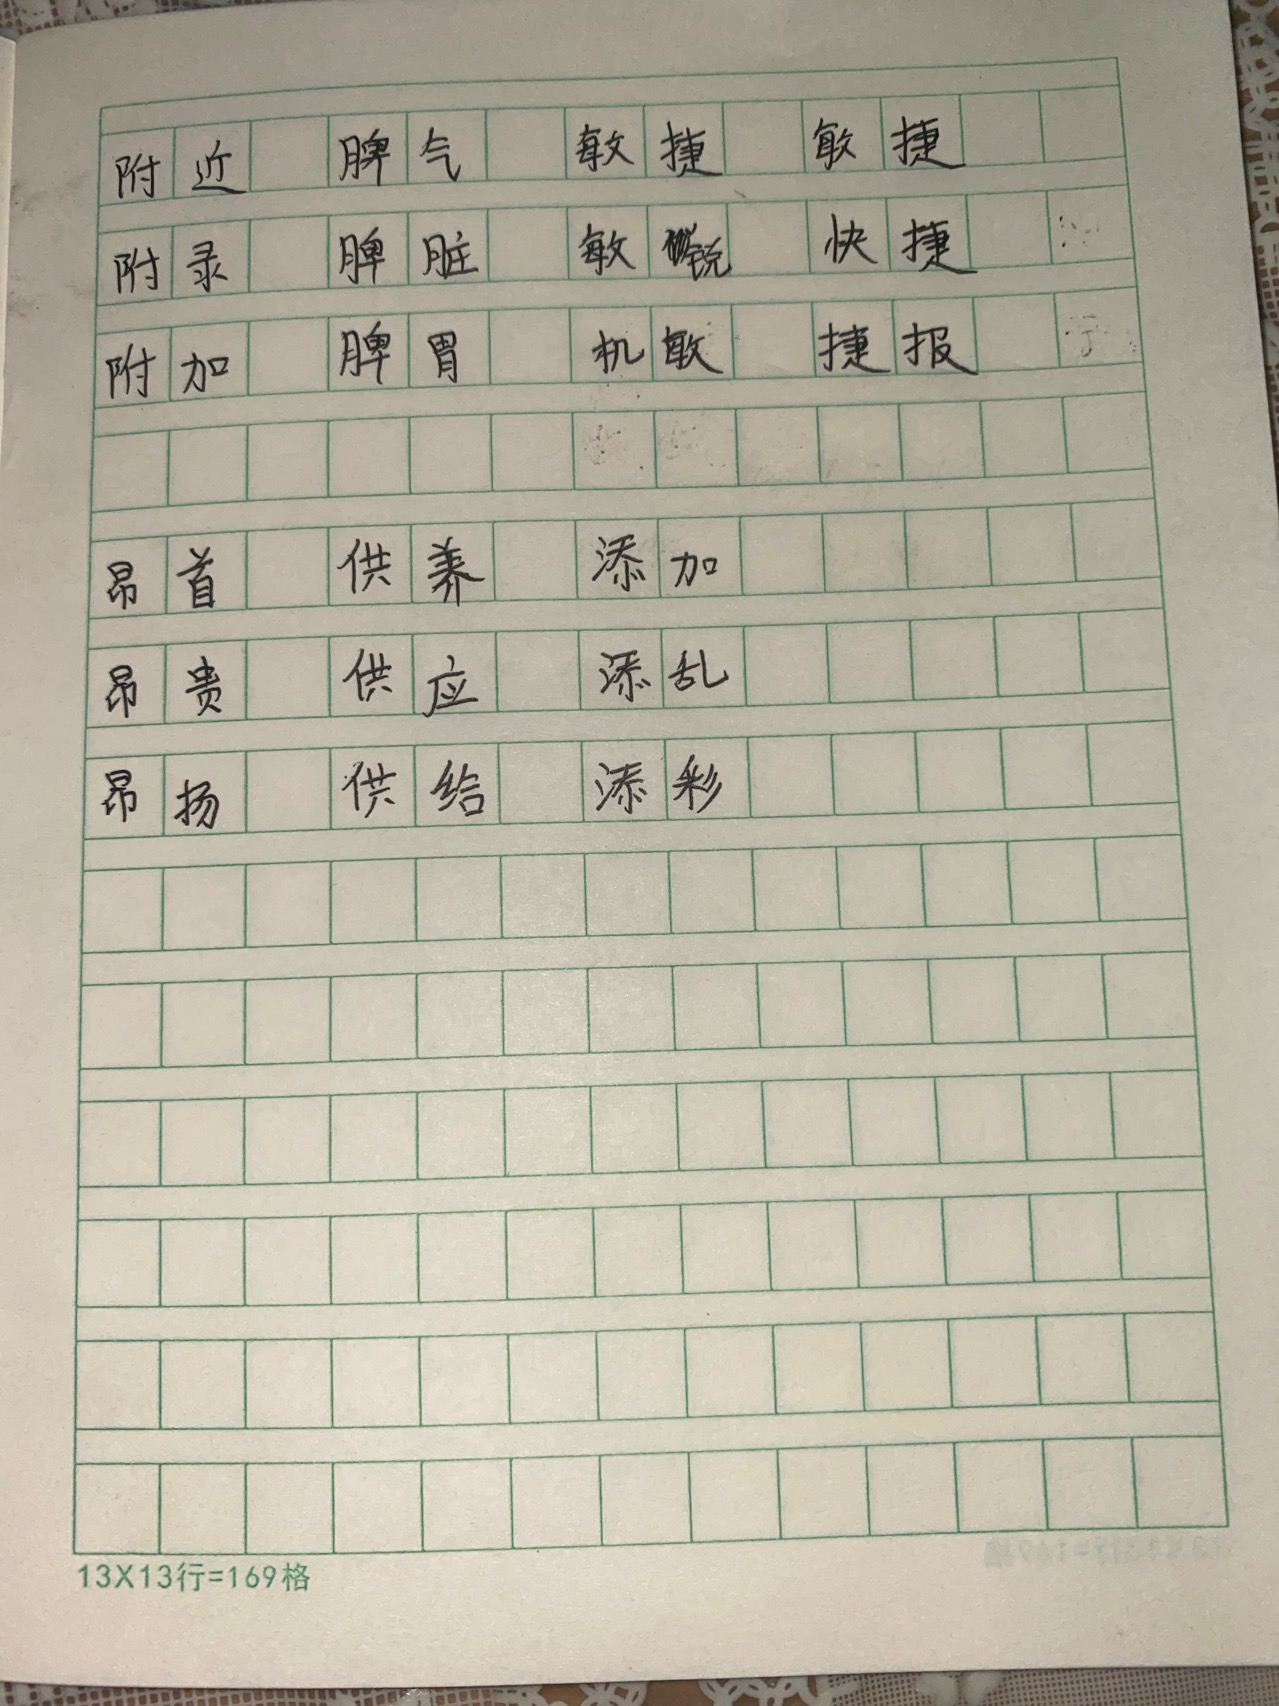 附近 脾气 敏捷 敏捷
附录 脾脏 敏锐 快捷
附加 脾胃 机敏 捷报
昂首 供养 添加
昂贵 供应 添乱
昂扬 供给 添彩
13X13行=169格